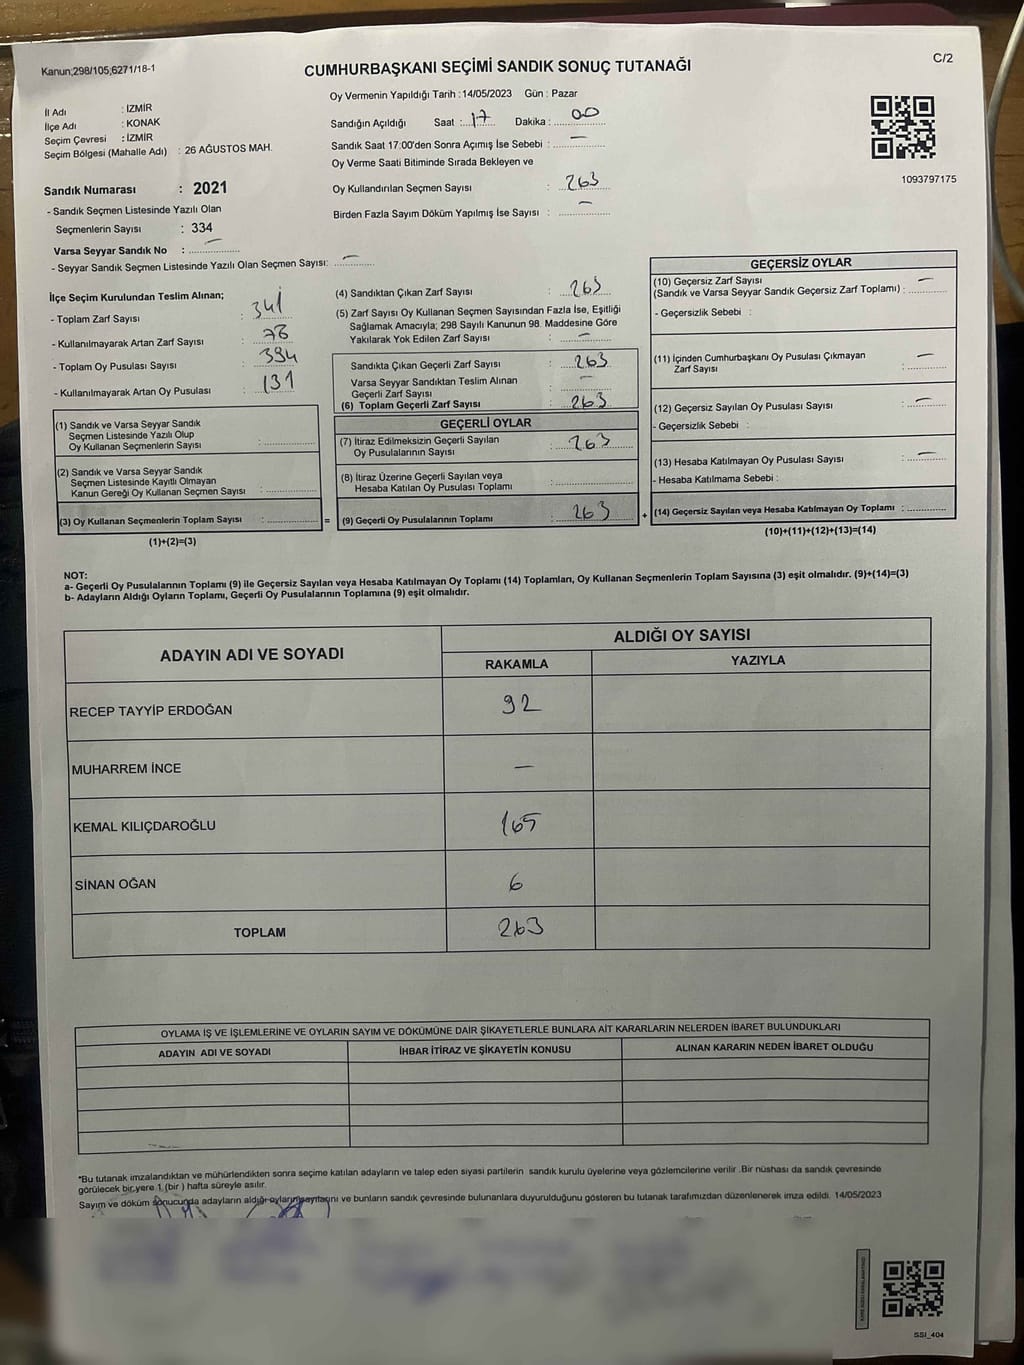 Kanun;298/105;6271/18-1
C/2
CUMHURBAŞKANI SEÇİMİ SANDIK SONUÇ TUTANAĞI
Oy Vermenin Yapıldığı Tarih : 14/05/2023 Gün : Pazar
İl Adı : İZMİR
İlçe Adı : KONAK
Seçim Çevresi : İZMİR
Seçim Bölgesi (Mahalle Adı) : 26 AĞUSTOS MAH.
Sandığın Açıldığı Saat : 17 Dakika : 00
Sandık Saat 17:00'den Sonra Açımış İse Sebebi : —
Oy Verme Saati Bitiminde Sırada Bekleyen ve
Oy Kullandırılan Seçmen Sayısı : 263
Birden Fazla Sayım Döküm Yapılmış İse Sayısı : —
1093797175
Sandık Numarası : 2021
- Sandık Seçmen Listesinde Yazılı Olan
Seçmenlerin Sayısı : 334
Varsa Seyyar Sandık No : —
- Seyyar Sandık Seçmen Listesinde Yazılı Olan Seçmen Sayısı: —
İlçe Seçim Kurulundan Teslim Alınan;
- Toplam Zarf Sayısı : 341
- Kullanılmayarak Artan Zarf Sayısı : 78
- Toplam Oy Pusulası Sayısı : 394
- Kullanılmayarak Artan Oy Pusulası : 131
(1) Sandık ve Varsa Seyyar Sandık
Seçmen Listesinde Yazılı Olup
Oy Kullanan Seçmenlerin Sayısı :
(2) Sandık ve Varsa Seyyar Sandık
Seçmen Listesinde Kayıtlı Olmayan
Kanun Gereği Oy Kullanan Seçmen Sayısı :
(3) Oy Kullanan Seçmenlerin Toplam Sayısı : =
(1)+(2)=(3)
(4) Sandıktan Çıkan Zarf Sayısı : 263
(5) Zarf Sayısı Oy Kullanan Seçmen Sayısından Fazla İse, Eşitliği
Sağlamak Amacıyla; 298 Sayılı Kanunun 98. Maddesine Göre
Yakılarak Yok Edilen Zarf Sayısı : —
Sandıkta Çıkan Geçerli Zarf Sayısı : 263
Varsa Seyyar Sandıktan Teslim Alınan
Geçerli Zarf Sayısı : —
(6) Toplam Geçerli Zarf Sayısı : 263
GEÇERLİ OYLAR
(7) İtiraz Edilmeksizin Geçerli Sayılan
Oy Pusulalarının Sayısı : 263
(8) İtiraz Üzerine Geçerli Sayılan veya
Hesaba Katılan Oy Pusulası Toplamı :
(9) Geçerli Oy Pusulalarının Toplamı : 263 +
GEÇERSİZ OYLAR
(10) Geçersiz Zarf Sayısı
(Sandık ve Varsa Seyyar Sandık Geçersiz Zarf Toplamı) : —
- Geçersizlik Sebebi :
(11) İçinden Cumhurbaşkanı Oy Pusulası Çıkmayan
Zarf Sayısı : —
(12) Geçersiz Sayılan Oy Pusulası Sayısı : —
- Geçersizlik Sebebi :
(13) Hesaba Katılmayan Oy Pusulası Sayısı : —
- Hesaba Katılmama Sebebi :
(14) Geçersiz Sayılan veya Hesaba Katılmayan Oy Toplamı :
(10)+(11)+(12)+(13)=(14)
NOT:
a- Geçerli Oy Pusulalarının Toplamı (9) ile Geçersiz Sayılan veya Hesaba Katılmayan Oy Toplamı (14) Toplamları, Oy Kullanan Seçmenlerin Toplam Sayısına (3) eşit olmalıdır. (9)+(14)=(3)
b- Adayların Aldığı Oyların Toplamı, Geçerli Oy Pusulalarının Toplamına (9) eşit olmalıdır.
ADAYIN ADI VE SOYADI
ALDIĞI OY SAYISI
RAKAMLA YAZIYLA
RECEP TAYYİP ERDOĞAN 92
MUHARREM İNCE —
KEMAL KILIÇDAROĞLU 165
SİNAN OĞAN 6
TOPLAM 263
OYLAMA İŞ VE İŞLEMLERİNE VE OYLARIN SAYIM VE DÖKÜMÜNE DAİR ŞİKAYETLERLE BUNLARA AİT KARARLARIN NELERDEN İBARET BULUNDUKLARI
ADAYIN ADI VE SOYADI İHBAR İTİRAZ VE ŞİKAYETİN KONUSU ALINAN KARARIN NEDEN İBARET OLDUĞU
*Bu tutanak imzalandıktan ve mühürlendikten sonra seçime katılan adayların ve talep eden siyasi partilerin sandık kurulu üyelerine veya gözlemcilerine verilir .Bir nüshası da sandık çevresinde
görülecek bir yere 1 (bir ) hafta süreyle asılır.
Sayım ve döküm sonucunda adayların aldığı oyların sayılarını ve bunların sandık çevresinde bulunanlara duyurulduğunu gösteren bu tutanak tarafımızdan düzenlenerek imza edildi. 14/05/2023
SSI_404